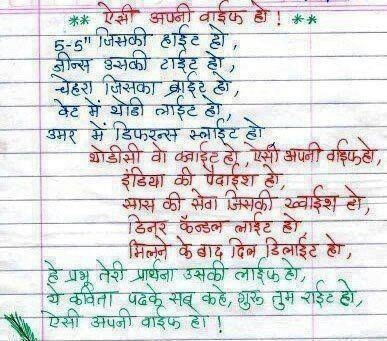 ** ऐसी अपनी वाईफ हो ! **
5-5" जिसकी हाईट हो,
जीन्स उसकी टाईट हो,
चेहरा जिसका ब्राईट हो,
वेट में थोडी लाईट हो,
उमर में डिफरन्स स्लाईट हो,
थोडीसी वो क्वाईट हो, ऐसी अपनी वाईफ हो,
इंडिया की पैदाईश हो,
सास की सेवा जिसकी ख्वाईश हो,
डिनर कॅन्डल लाईट हो,
मिलने के बाद दिल डिलाईट हो,
हे प्रभू तेरी प्रार्थना उसकी लाईफ हो,
ये कविता पढके सब कहे, गुरू तुम राईट हो,
ऐसी अपनी वाईफ हो !